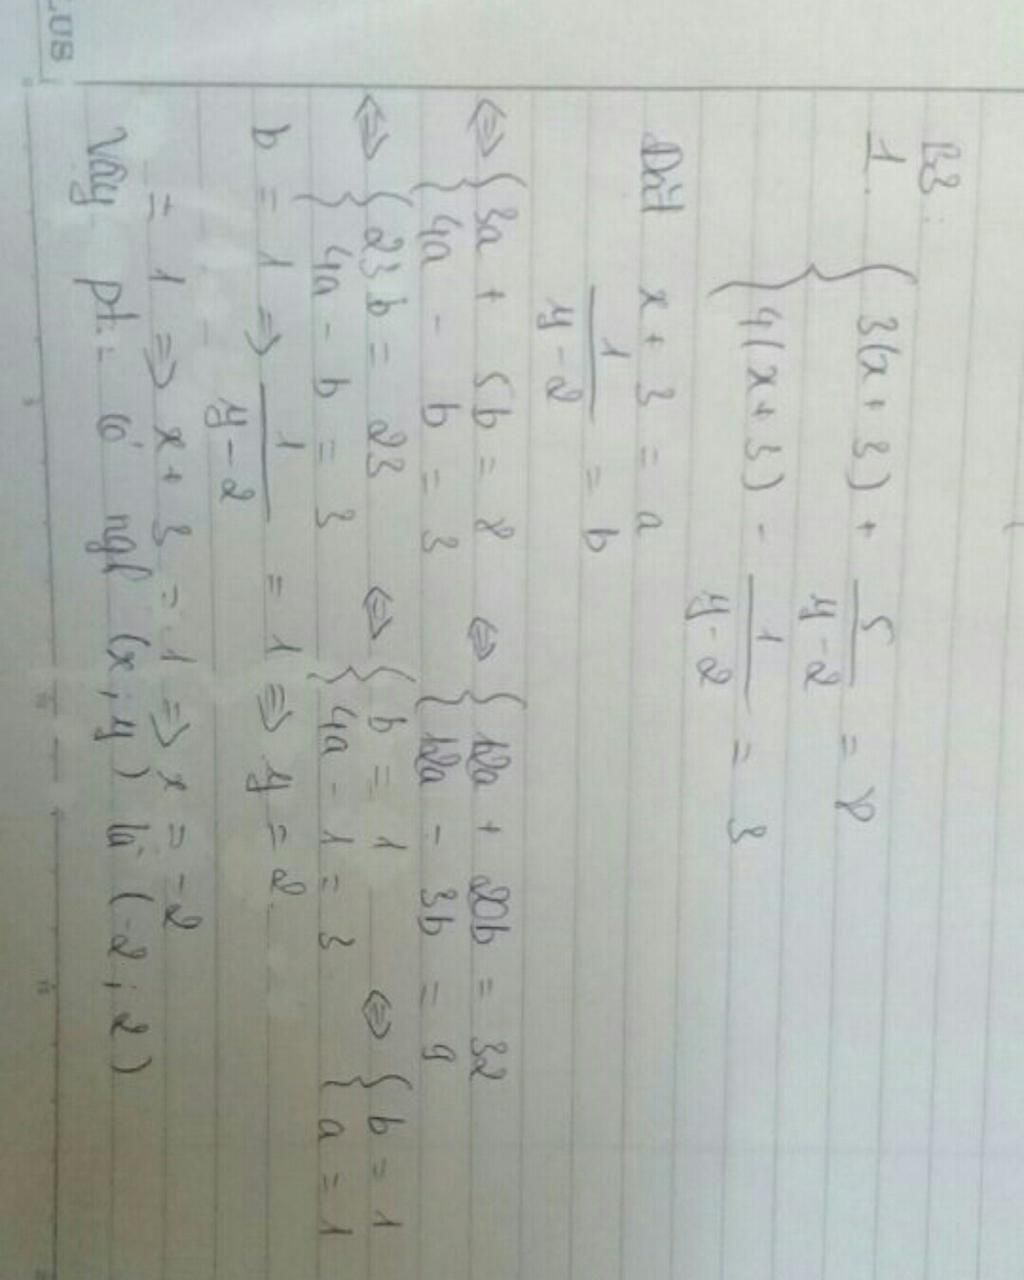 LUS
B3:
1. { 3(x + 3) + 5/(y - 2) = 8
{ 4(x + 3) - 1/(y - 2) = 3
Đặt x + 3 = a
1/(y - 2) = b
⇔ { 3a + 5b = 8 ⇔ { 12a + 20b = 32
{ 4a - b = 3 { 12a - 3b = 9
⇔ { 23b = 23 ⇔ { b = 1 ⇔ { b = 1
{ 4a - b = 3 { 4a - 1 = 3 { a = 1
b = 1 ⇒ 1/(y - 2) = 1 ⇒ y = 2
= 1 ⇒ x + 3 = 1 ⇒ x = -2
Vậy pt có ngh (x ; y) là (-2 ; 2)